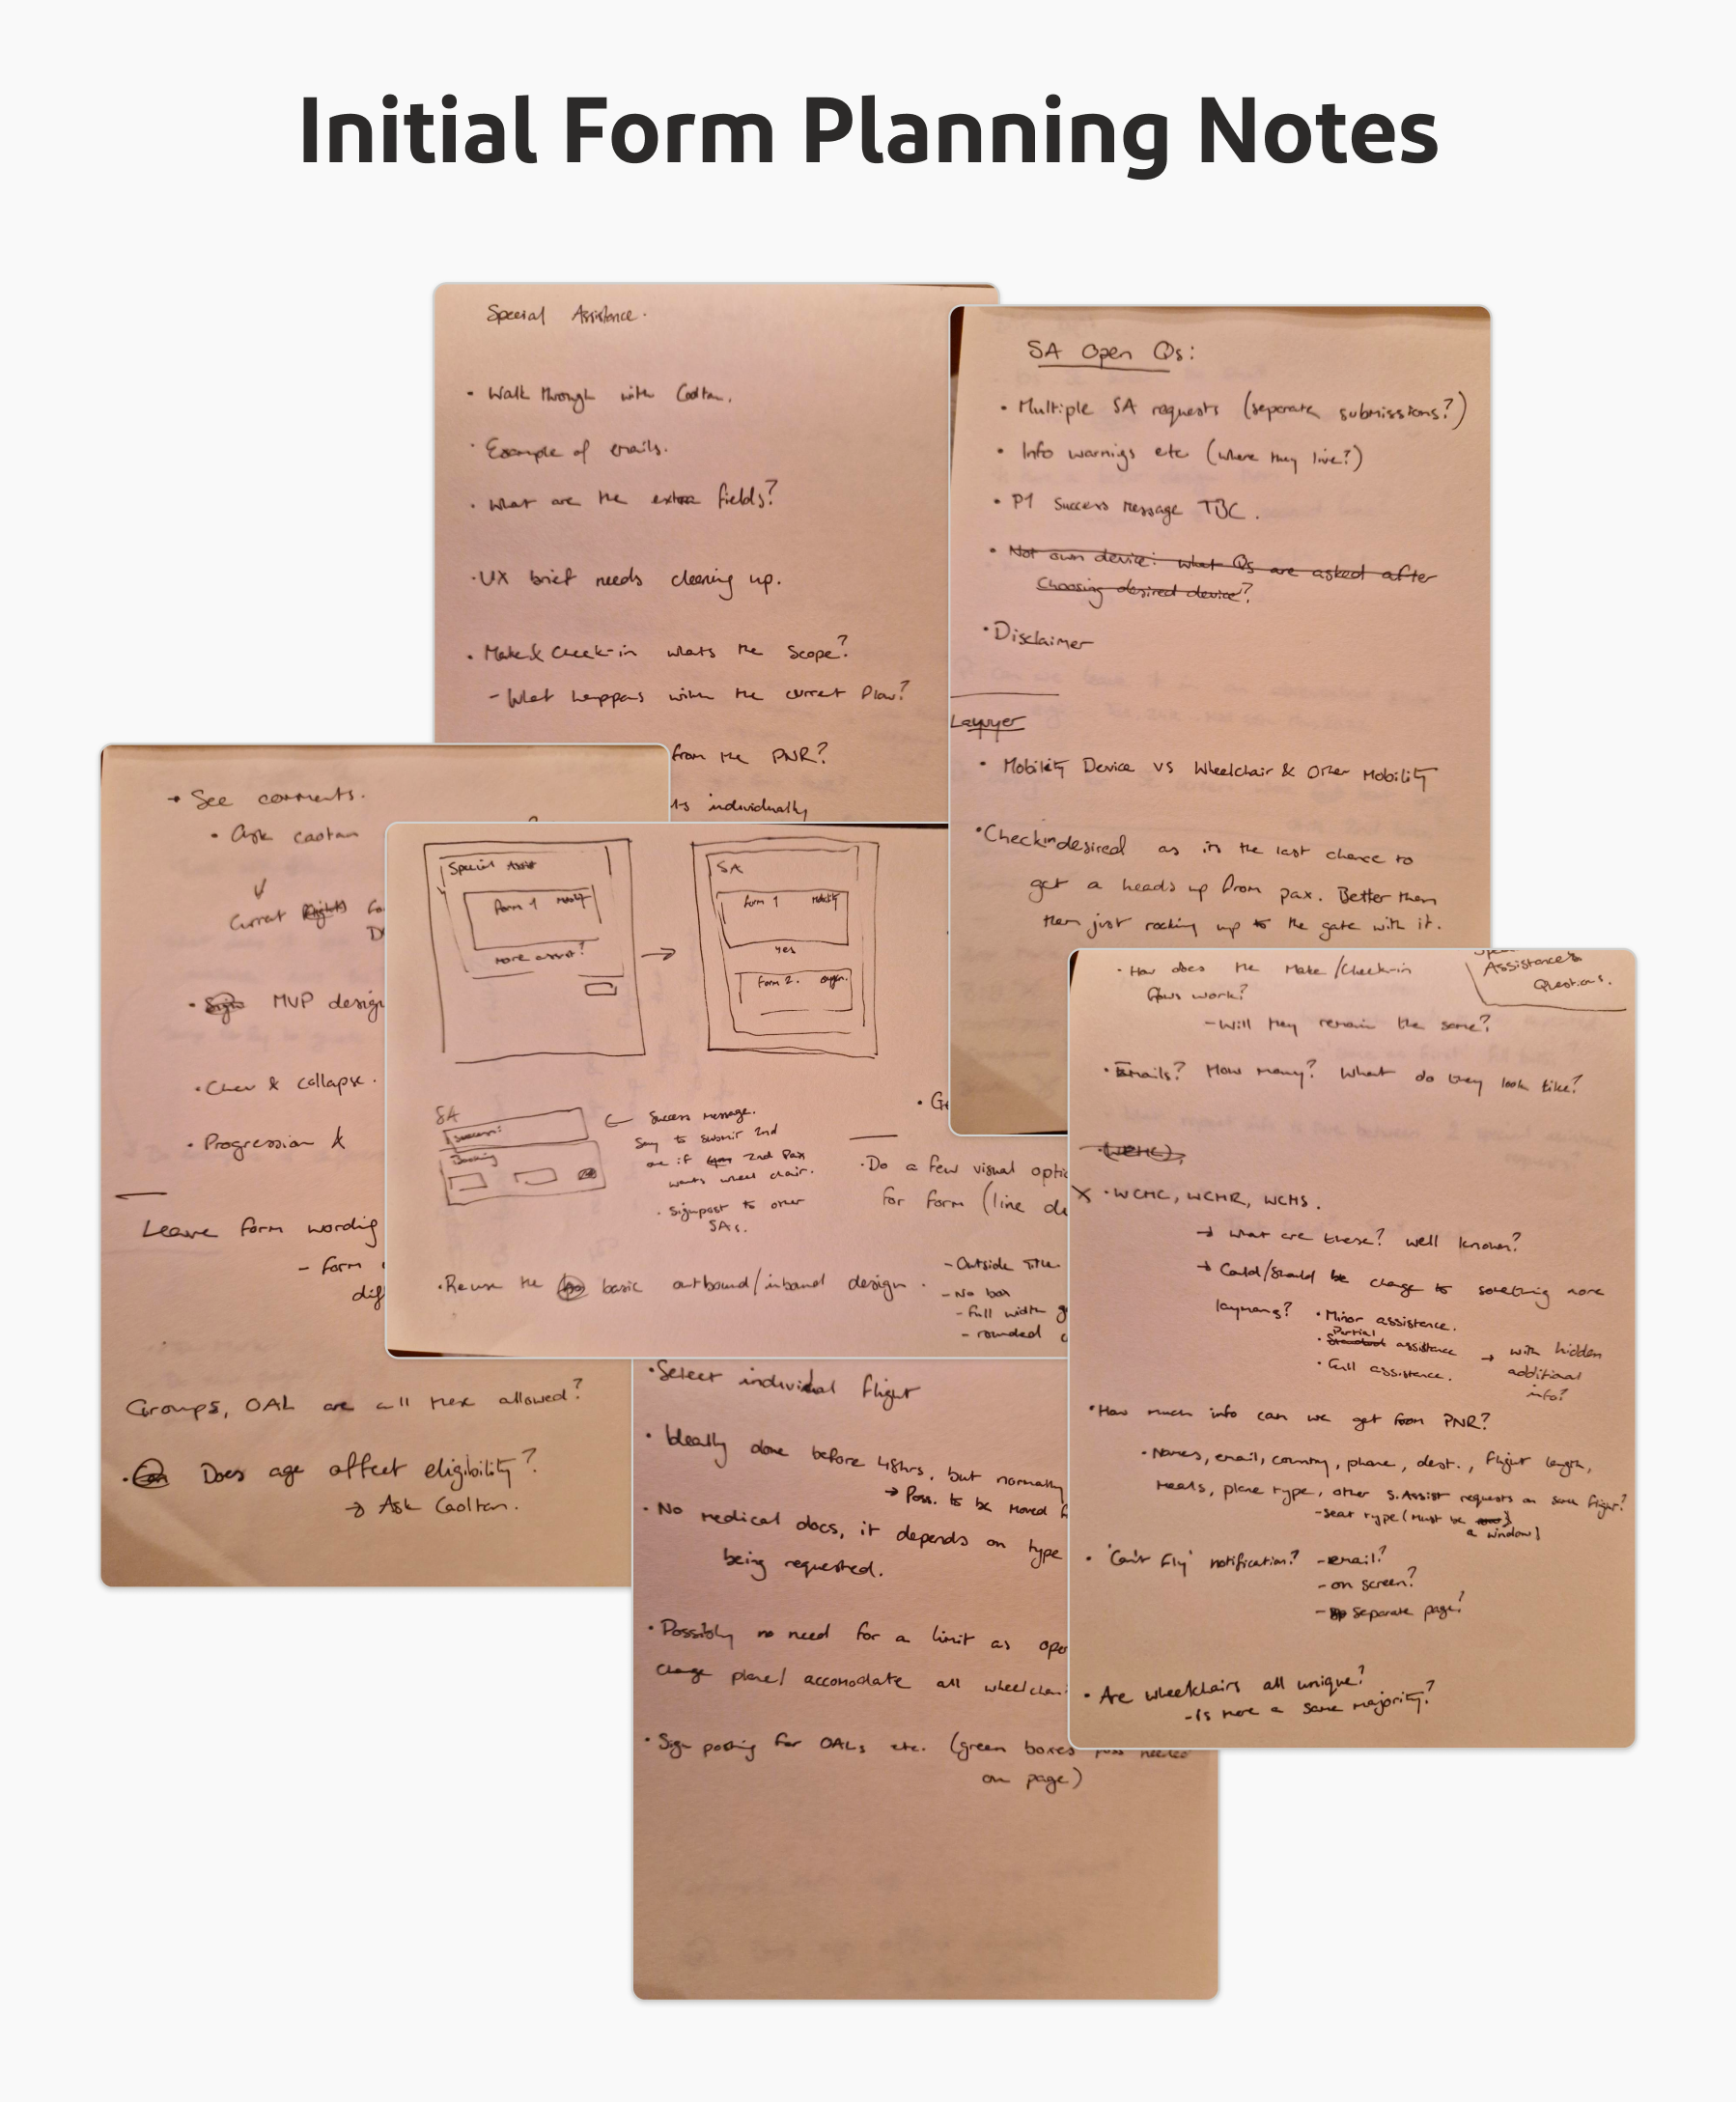 Initial Form Planning Notes
Special Assistance.
· Walk through with Caoltan.
· Example of emails.
· What are the extra fields?
· UX brief needs clearing up.
· Make & Check-in whats the scope?
- What happens with the current flow?
from the PNR?
individually
SA Open Qs:
· Multiple SA requests (seperate submissions?)
· Info warnigs etc (where they live?)
· P1 Success Message TBC.
· Not own device: what Qs are asked after
choosing desired device?
· Disclaimer
Lawyer
· Mobility Device vs Wheelchair & Other Mobility
· Checkin desired as its the last chance to
get a heads up from pax. Better them
then just rocking up to the gate with it.
→ See comments.
· Ask caoltan
Current flights
· MVP design
· Chev & collapse.
· Progression &
Leave form wording
- Form
Groups, OAL are all these allowed?
· Does age affect eligibility?
→ Ask Caoltan.
Special Assist
Form 1 Mobility
More assist?
SA
Form 1 Mobility
yes
Form 2.
SA
Success:
Booking
← Success message.
Say to submit 2nd
one if 2nd Pax
wants wheel chair.
· Signpost to other
SAs.
· Reuse the basic outbound/inbound design.
· Do a few visual
for form (line
- Outside Title
- No box
- Full width
- rounded
· Select individual flight
· Ideally done before 48hrs, but normally
→ Poss. to be moved
· No medical docs, it depends on type
being requested.
· Possibly no need for a limit as
change plane/ accomodate all
· Sign posting for OALs etc. (green boxes poss needed
on page)
Assistance
Questions.
· How does the Make/Check-in
flows work?
- Will they remain the same?
· Emails? How many? What do they look like?
X · WCMC, WCMR, WCMS.
→ What are these? well known?
→ Could/Should be change to something more
laymans?
· Minor assistance.
· Partial assistance
· Full assistance.
→ with hidden
additional
info?
· How much info can we get from PNR?
· Names, email, country, phone, dest., flight length,
meals, plane type, other S.Assist requests on same flight?
- seat type (must be
a window)
· 'Can't Fly' notification? - email?
- on screen?
- separate page?
· Are wheelchairs all unique?
- Is there a same majority?